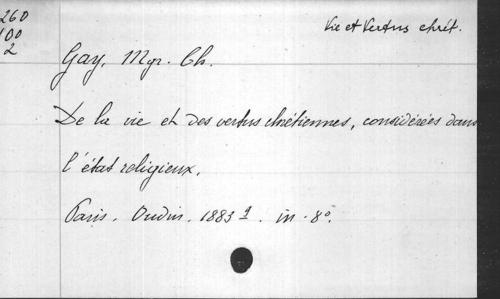 260
100
2
Vie et Vertus chrét.
Gay, Mgr. Ch.
De la vie et des vertus chrétiennes, considérées dans
l'état religieux.
Paris. Oudin. 1883. in-8°.